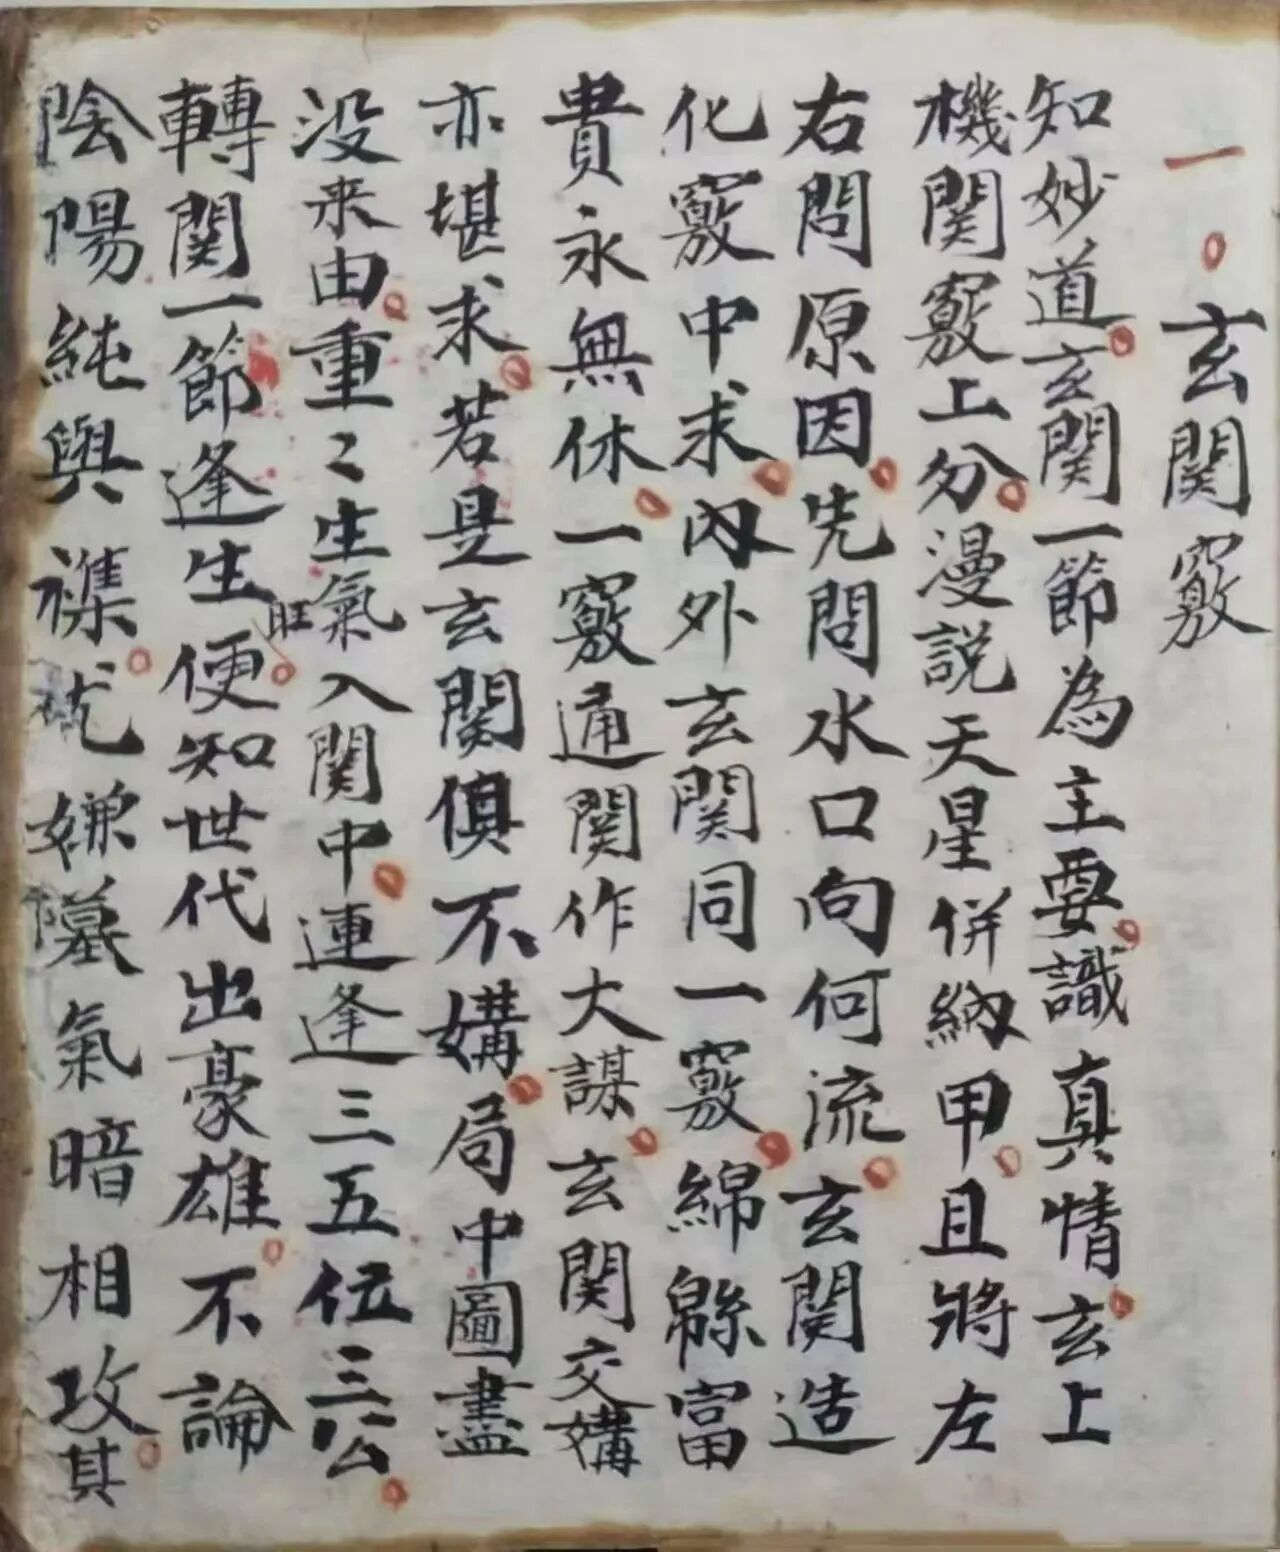 一。玄関竅
知妙道。玄関一節為主要。識真情。玄上
機関竅上分。漫說天星併納甲。且将左
右問原因。先問水口向何流。玄関造
化竅中求。內外玄関同一竅。綿緜富
貴永無休。一竅通関作大謀。玄関交媾
亦堪求。若是玄関俱不媾。局中圖盡
没来由。重〻生氣入関中。連逢三五位三公。
轉関一節逢生便旺。知世代出豪雄。不論
陰陽純與襍。尤嫌墓氣暗相攻。其